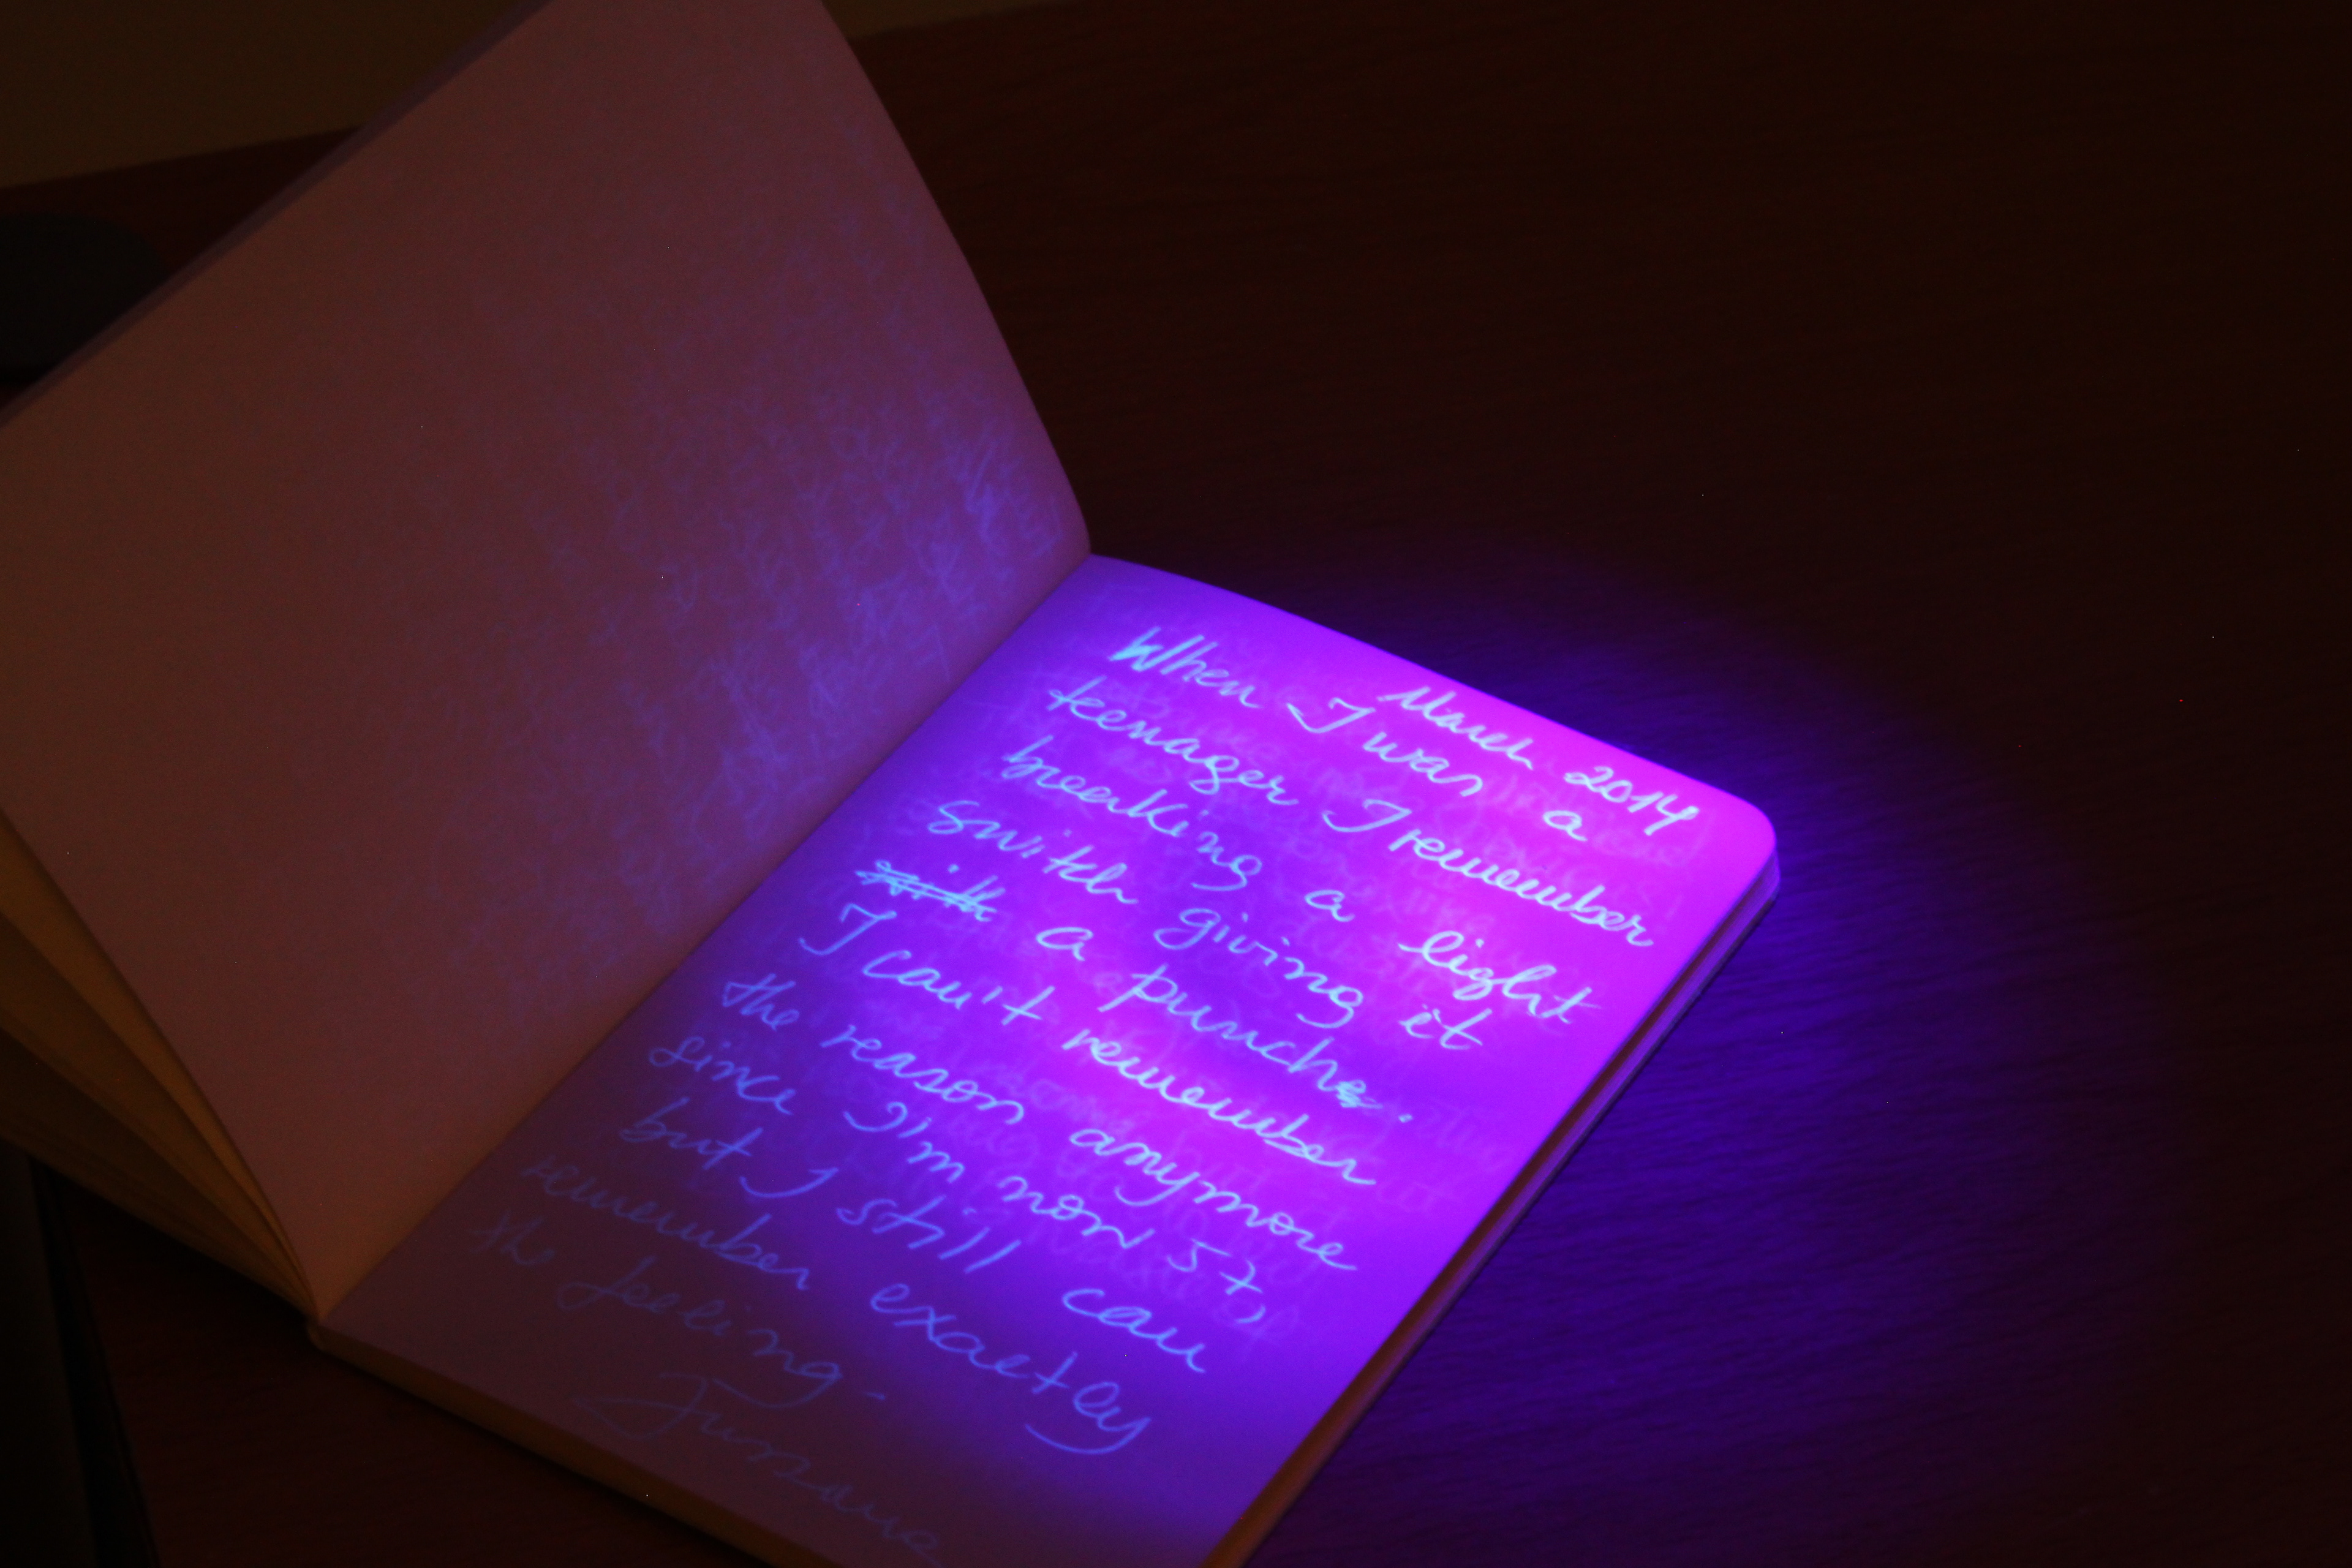 March 2014
When I was a
teenager I remember
breaking a light
switch giving it
a punch.
I can't remember
the reason anymore
since I'm now 57,
but I still can
remember exactly
the feeling.